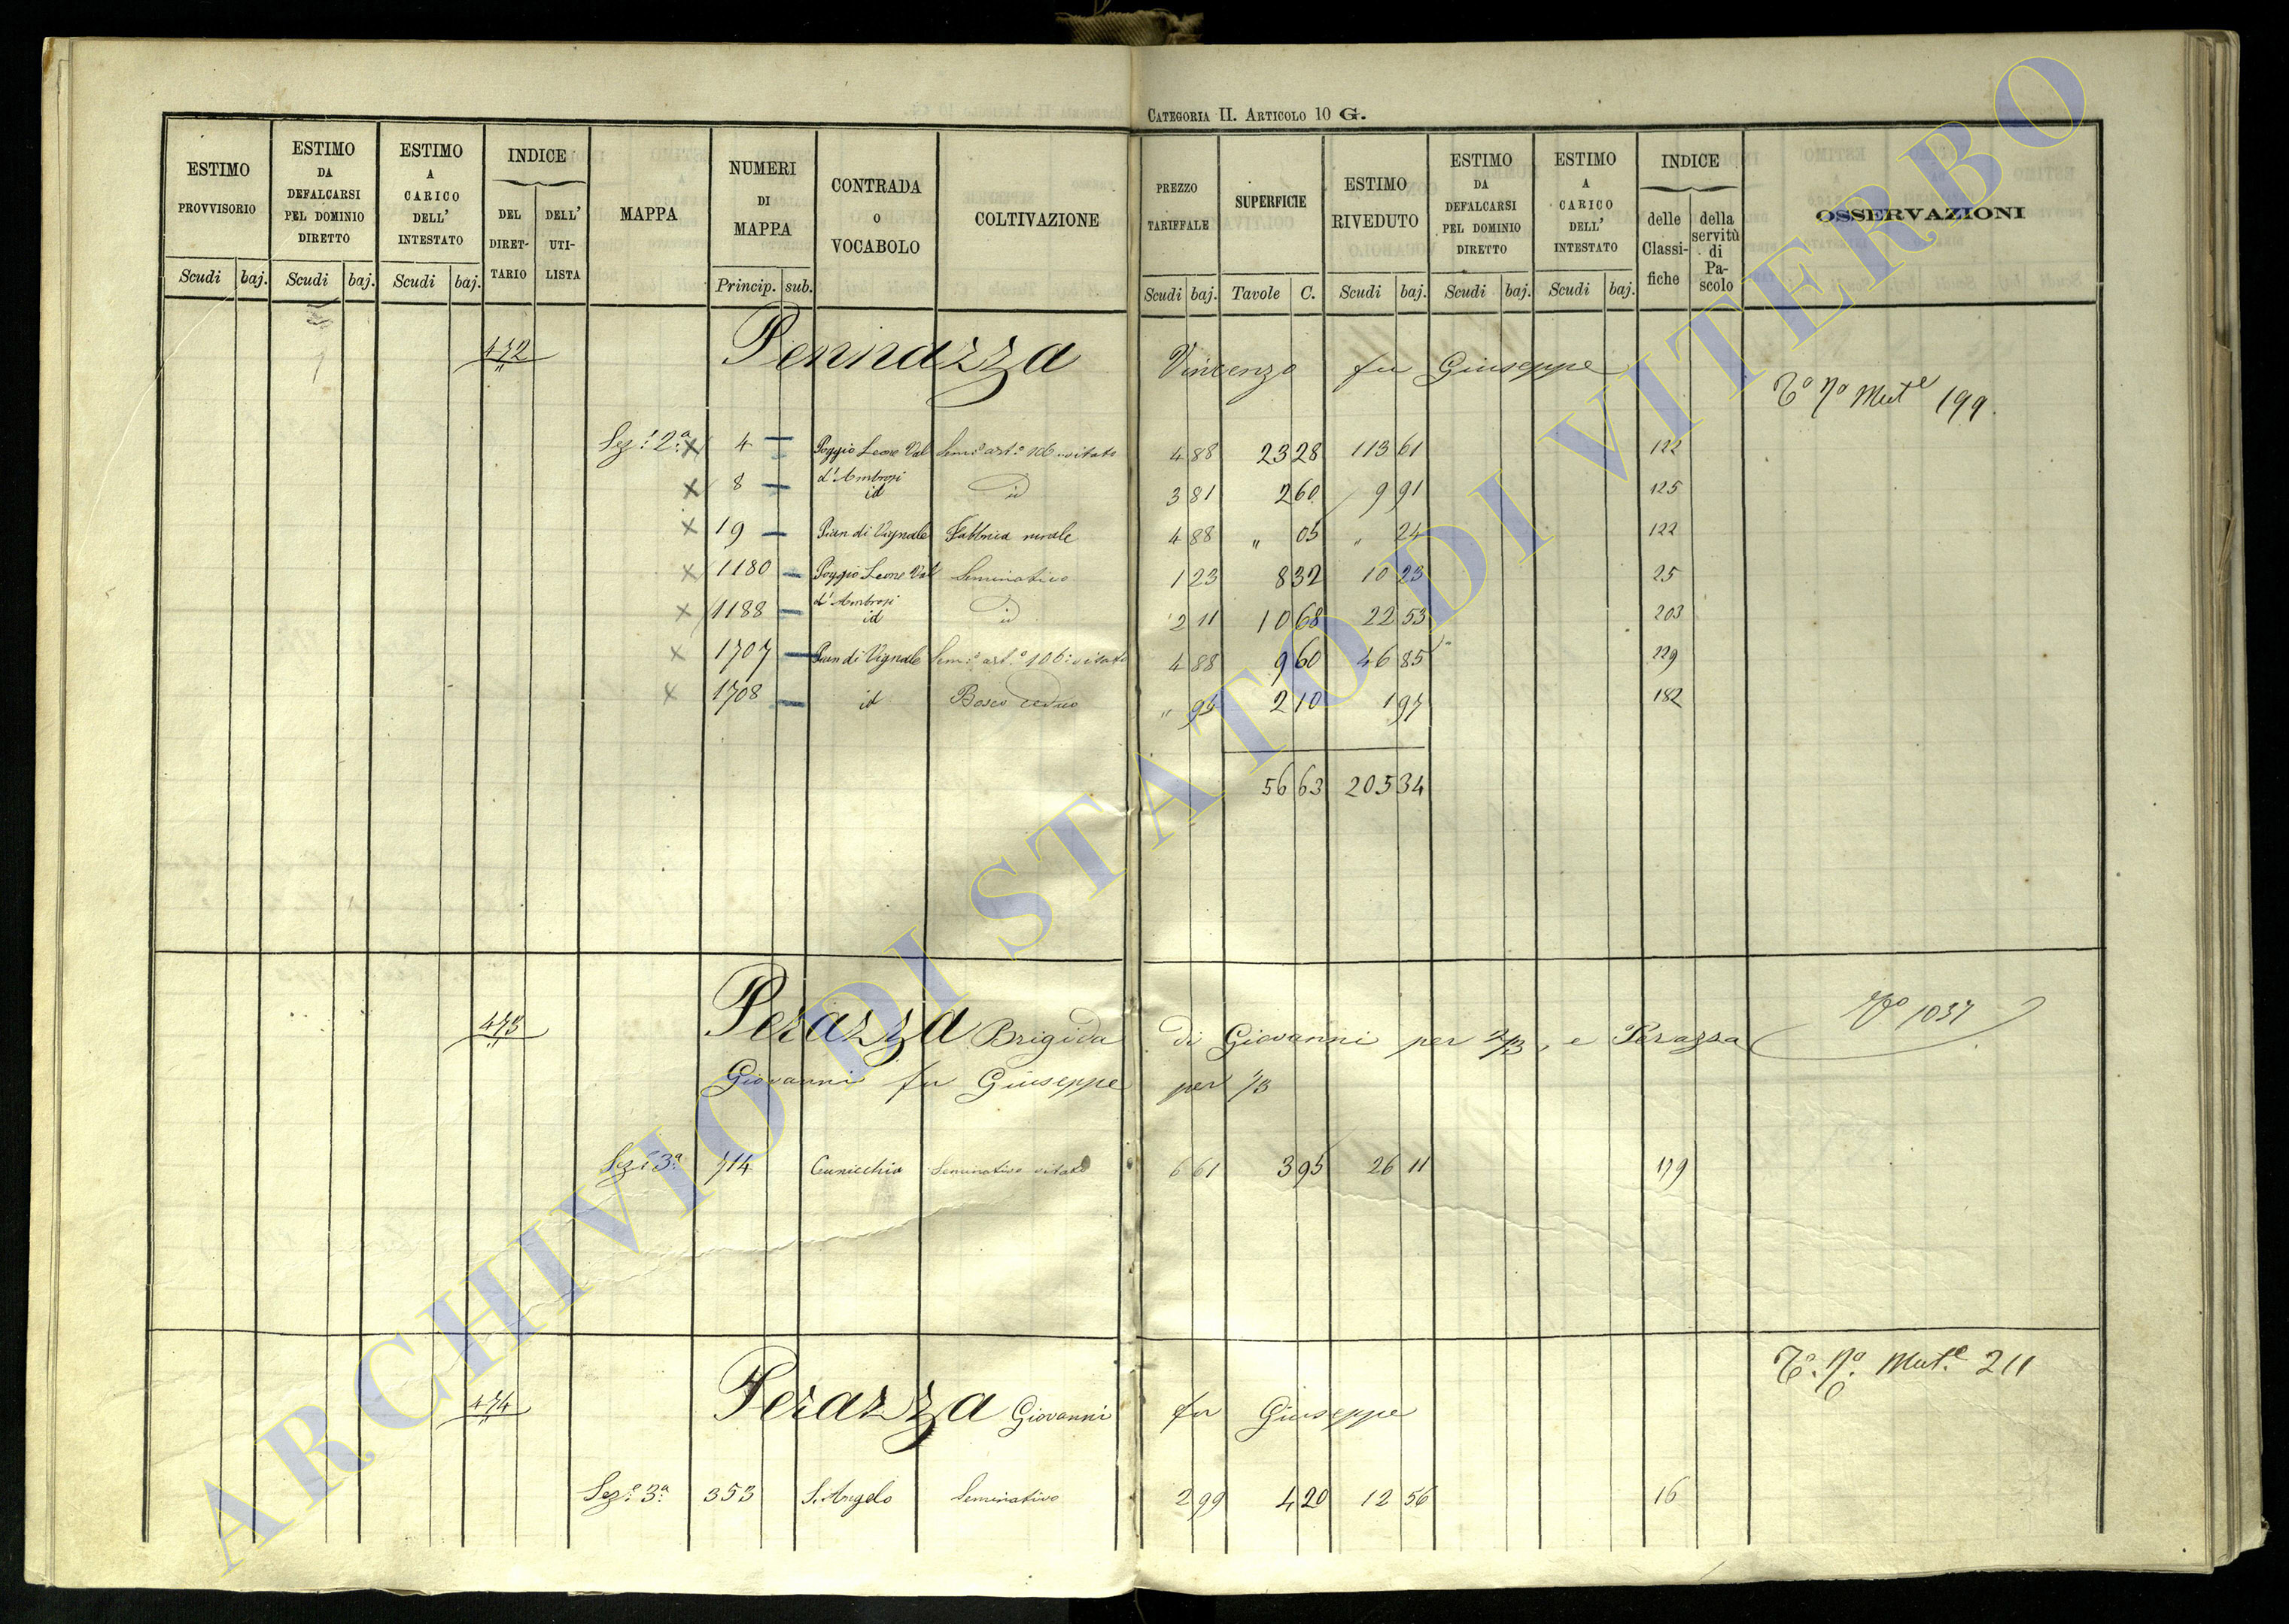 CATEGORIA II. ARTICOLO 10 G.
ESTIMO PROVVISORIO Scudi baj.
ESTIMO DA DEFALCARSI PEL DOMINIO DIRETTO Scudi baj.
ESTIMO A CARICO DELL' INTESTATO Scudi baj.
INDICE DEL DIRET- TARIO DELL' UTI- LISTA
MAPPA
NUMERI DI MAPPA Princip. sub.
CONTRADA O VOCABOLO
COLTIVAZIONE
PREZZO TARIFFALE Scudi baj.
SUPERFICIE Tavole C.
ESTIMO RIVEDUTO Scudi baj.
ESTIMO DA DEFALCARSI PEL DOMINIO DIRETTO Scudi baj.
ESTIMO A CARICO DELL' INTESTATO Scudi baj.
INDICE delle Classi- fiche della servitù di Pa- scolo
OSSERVAZIONI
472 Pennazza Vincenzo fu Giuseppe
To No Mut.e 199.
Sez.e 2.a x 4 — Poggio Leone Val d'Ambrosi Sem.o art.o 106 vitato 4 88 23 28 113 61 122
x 8 — id id 3 81 2 60 9 91 125
x 19 — Pian di Vignale Fabbrica rurale 4 88 " 05 " 24 122
x 1180 — Poggio Leone Val d'Ambrosi Seminativo 1 23 8 32 10 23 25
x 1188 — id id 2 11 10 68 22 53 203
x 1707 — Pian di Vignale Sem.o art.o 106: vitato 4 88 9 60 46 85 229
x 1708 — id Bosco ceduo " 94 2 10 1 97 182
56 63 205 34
473 Perazza Brigida di Giovanni per 2/3, e Perazza
No 1037
Giovanni fu Giuseppe per 1/3
Sez.e 3.a 714 Cunicchio Seminativo vitato 6 61 3 95 26 11 179
To. No. Mut.e 211
474 Perazza Giovanni fu Giuseppe
Sez.e 3.a 353 S. Angelo Seminativo 2 99 4 20 12 56 16
ARCHIVIO DI STATO DI VITERBO